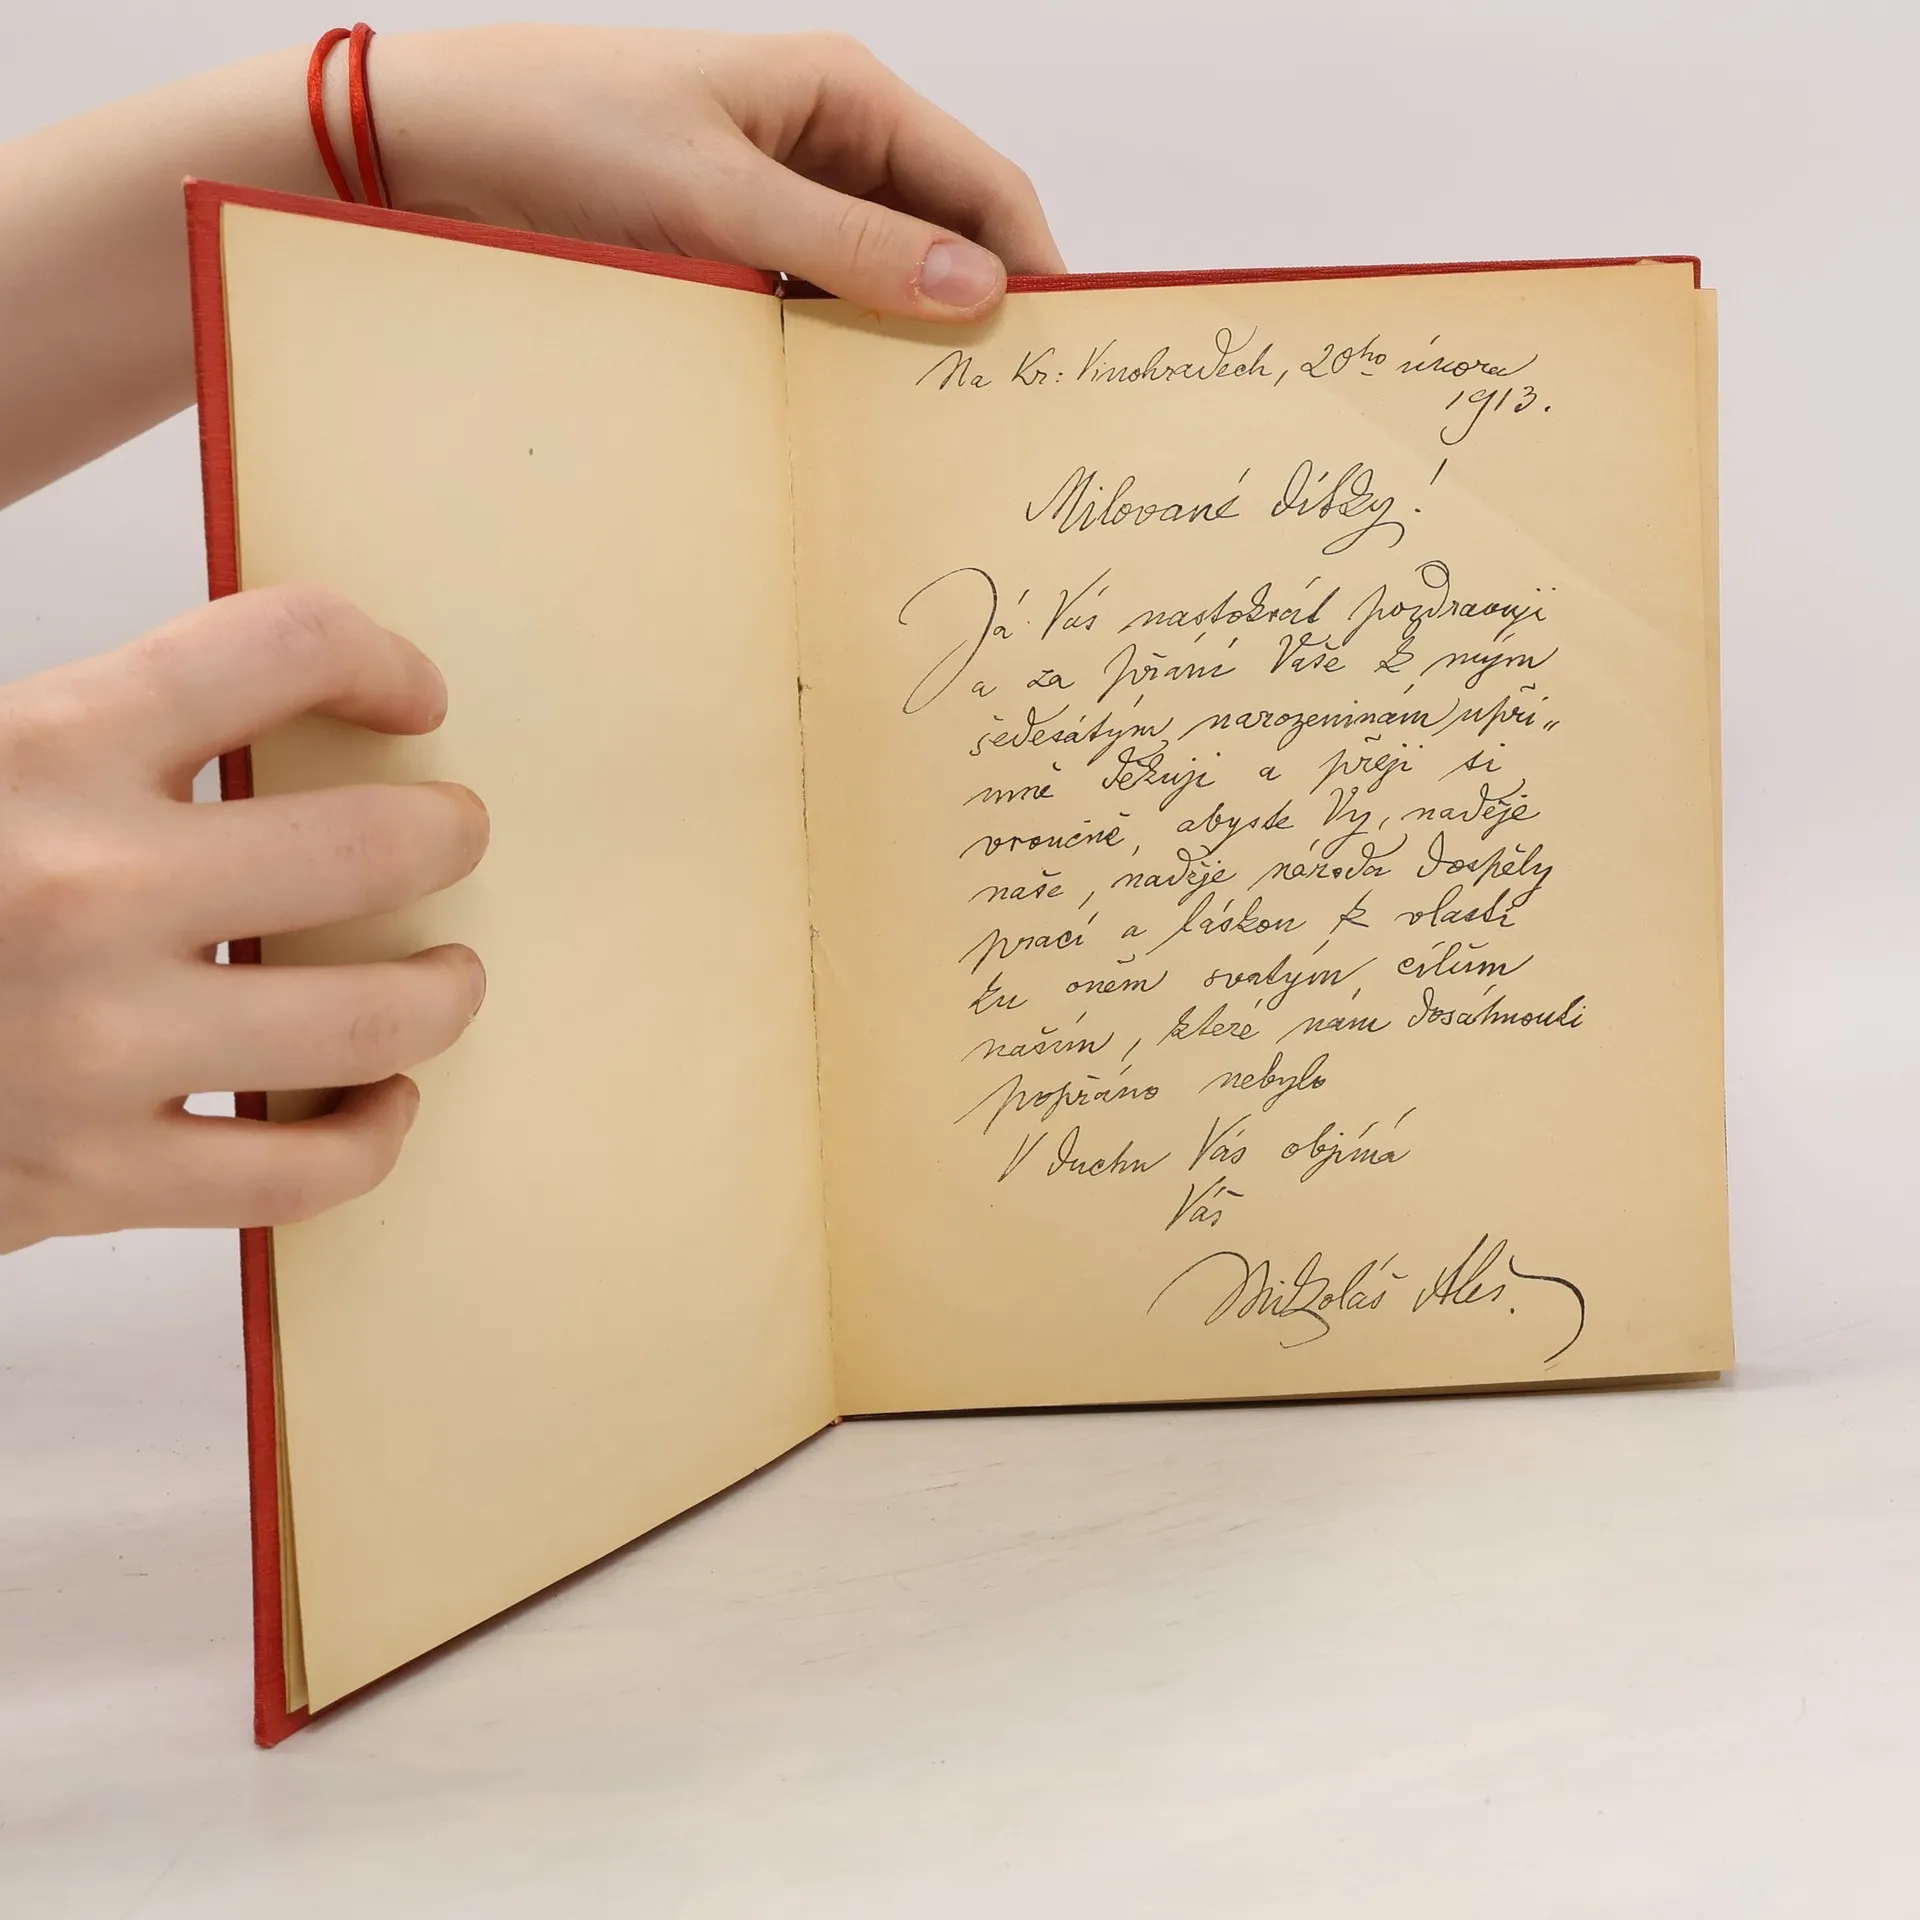 Na Kr: Vinohradech, 20ho února
1913.
Milované dítky!
Já Vás nastokrát pozdravuji
a za přání Vaše k mým
šedesátým narozeninám upří„
mně děkuji a přeji si
vroucně, abyste Vy, naděje
naše, naděje národa dospěly
prací a láskou k vlasti
ku oněm svatým cílům
naším, které nám dosáhnouti
popřáno nebylo
V duchu Vás objímá
Váš
Mikoláš Aleš.